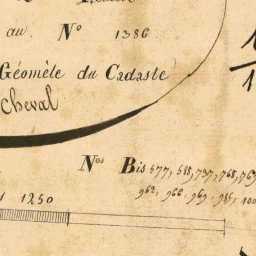 au N° 1386
Géomète du Cadaste
Cheval
Nos Bis 577, 588, 737, 768, 767
962, 966, 969, 985, 100
1250